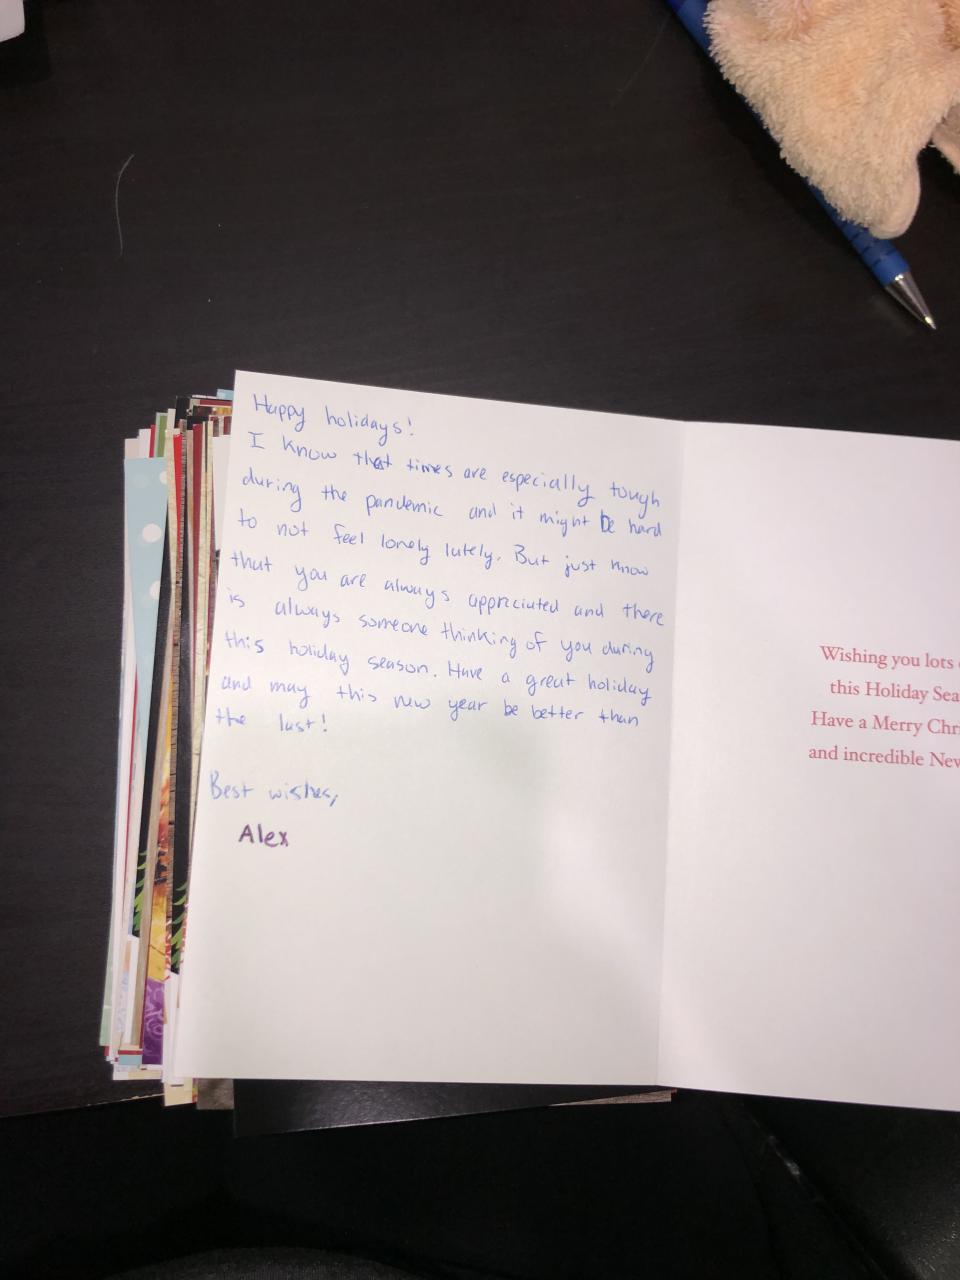 Happy holidays!
I know that times are especially tough
during the pandemic and it might be hard
to not feel lonely lately. But just know
that you are always appriciated and there
is always someone thinking of you during
this holiday season. Have a great holiday
and may this new year be better than
the last!
Best wishes,
Alex
Wishing you lots
this Holiday Sea
Have a Merry Chri
and incredible New